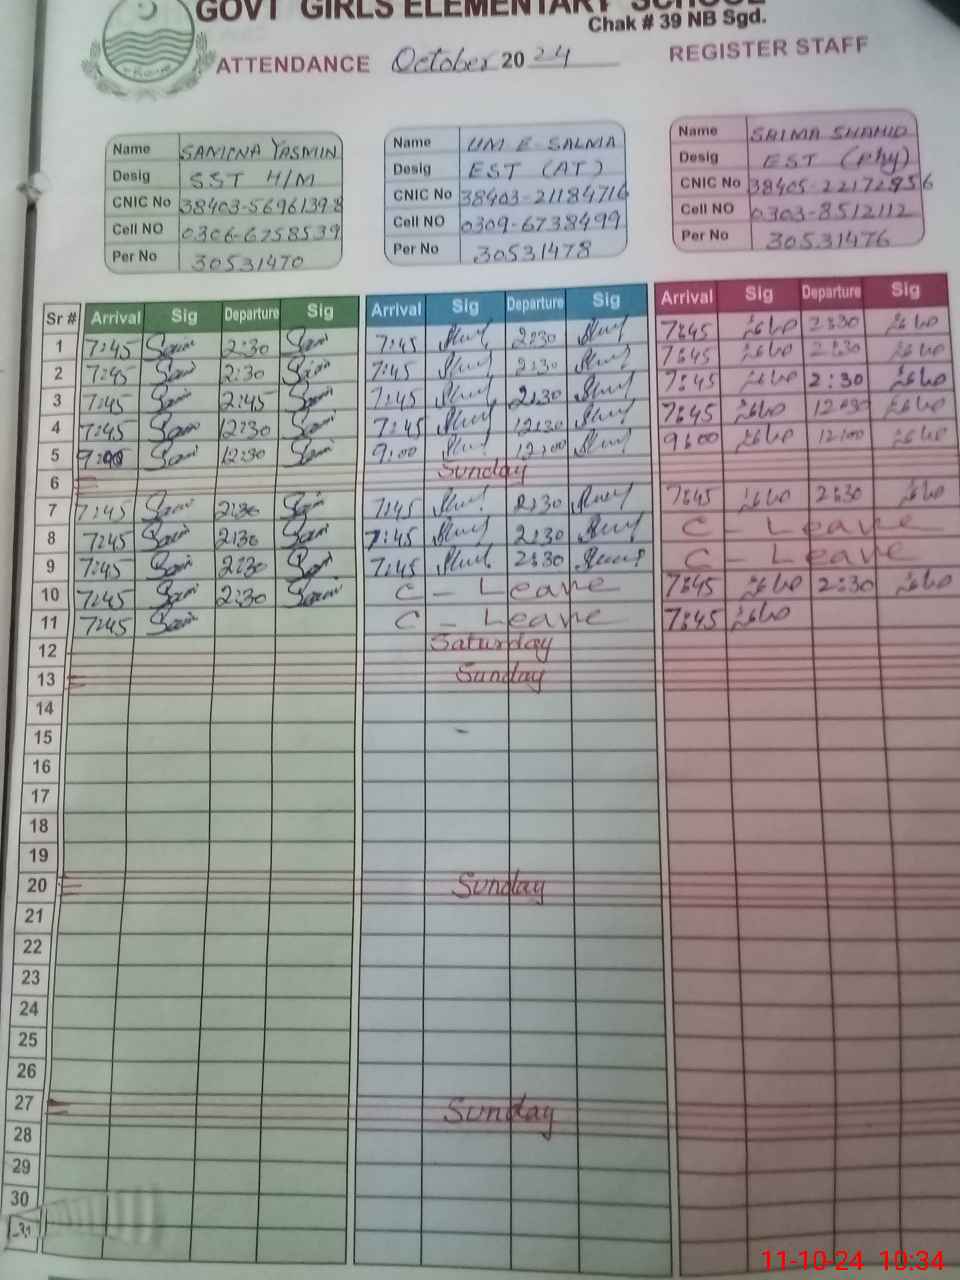 GOVT GIRLS ELEMENTARY SCHOOL
Chak # 39 NB Sgd.
ATTENDANCE October 2024 REGISTER STAFF
Name SAMINA YASMIN
Desig SST H/M
CNIC No 38403-5696139-8
Cell NO 0306-6758539
Per No 30531470
Name UM E SALMA
Desig EST (AT)
CNIC No 38403-2118471-6
Cell NO 0309-6738499
Per No 30531478
Name SAIMA SHAHID
Desig EST (Phy)
CNIC No 38405-2217295-6
Cell NO 0303-8512112
Per No 30531476
Sr # Arrival Sig Departure Sig Arrival Sig Departure Sig Arrival Sig Departure Sig
1 7:45 2:30 7:45 2:30 7:45 2:30
2 7:45 2:30 7:45 2:30 7:45 2:30
3 7:45 2:45 7:45 2:30 7:45 2:30
4 7:45 12:30 7:45 12:30 7:45 12:30
5 9:00 12:30 9:00 12:00 9:00 12:00
6 Sunday
7 7:45 2:30 7:45 2:30 7:45 2:30
8 7:45 2:30 7:45 2:30 C - Leave
9 7:45 2:30 7:45 2:30 C - Leave
10 7:45 2:30 C - Leave 7:45 2:30
11 7:45 C - Leave 7:45
12 Saturday
13 Sunday
14
15
16
17
18
19
20 Sunday
21
22
23
24
25
26
27 Sunday
28
29
30
31
11-10-24 10:34